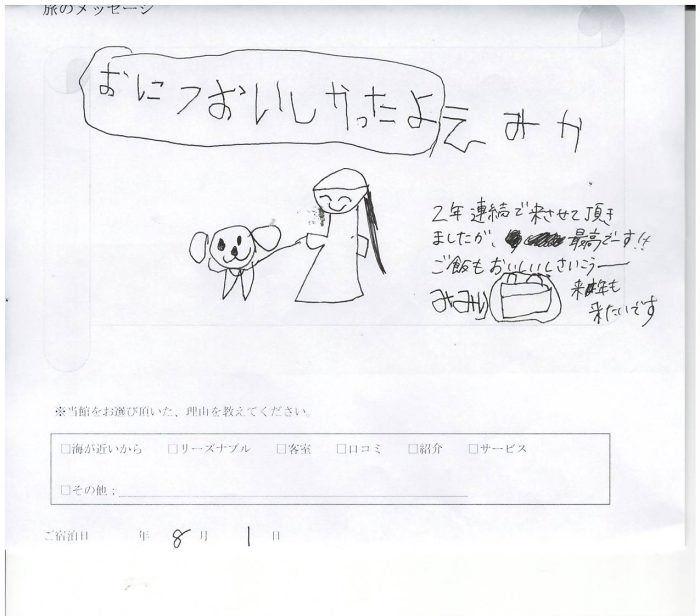 旅のメッセージ
おにつおいしかったよ えみか
2年連続で来させて頂き
ましたが、最高でーす!!
ご飯もおいしいしさいこうー
来年も
来たいです
※当館をお選び頂いた、理由を教えてください。
□海が近いから □リーズナブル □客室 □口コミ □紹介 □サービス
□その他；
ご宿泊日 年 8 月 1 日